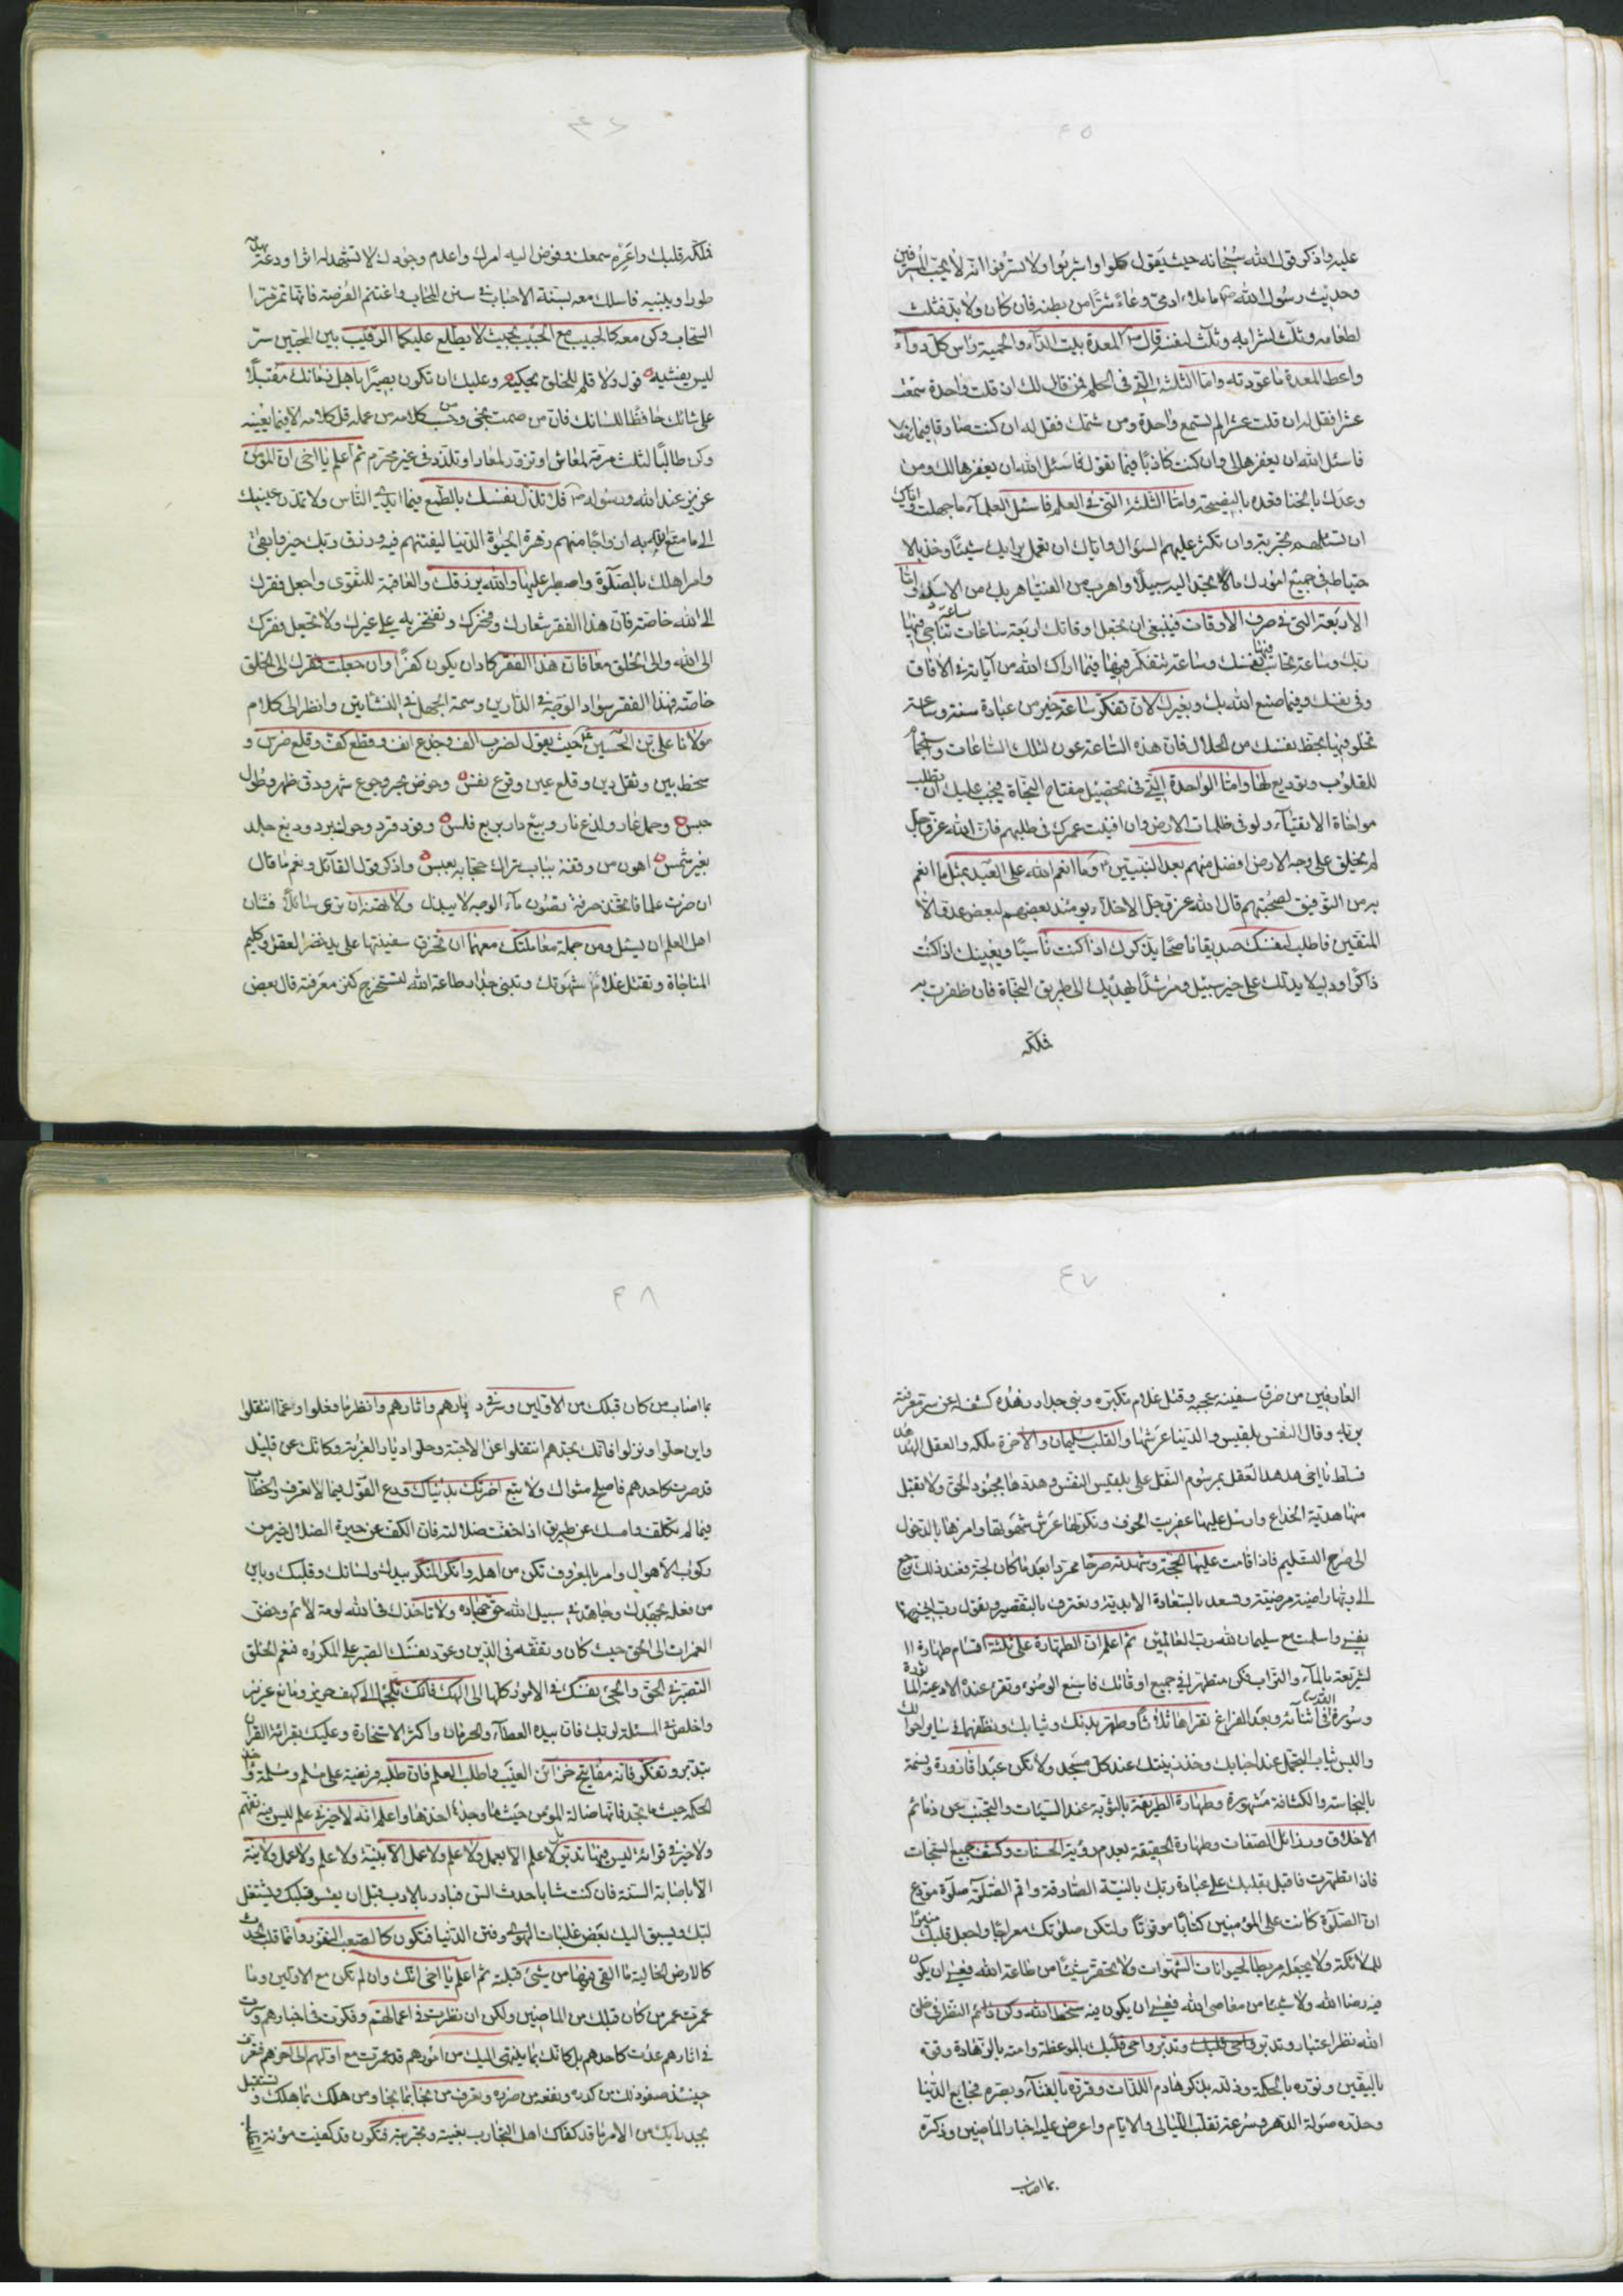 ٤٥
عليه واذكر قول الله سبحانه حيث يقول كلوا واشربوا ولا تسرفوا انه لا يحب المسرفين
وحديث رسول الله ص ما ملاء ادمي وعاءً شرًا من بطنه فان كان ولا بد فثلث
لطعامه وثلث لشرابه وثلث لنفسه قال ص المعدة بيت الداء والحمية راس كل دواء
واعط المعدة ما عودته واما الثلثة التي في الحلم فمن قال لك ان قلت واحدة سمعت
عشرا فقل له ان قلت عشرا لم تسمع واحدة ومن شتمك فقل له ان كنت صادقا فيما تقول
فاسئل الله ان يغفرها لي وان كنت كاذبًا فيما تقول فاسئل الله ان يغفرها لك ومن
وعدك بالخنا فعده بالنصيحة واما الثلثة التي في العلم فاسئل العلماء ما جهلت واياك
ان تسئلهم تجربة وان تكثر عليهم السؤال واياك ان تعمل برايك شيئًا وخذ بالا
حتياط في جميع امورك ما لا تجد اليه سبيلًا واهرب من الفتيا هربك من الاسد واما
الاربعة التي في صرف الاوقات فينبغي ان تجعل اوقاتك اربعة ساعات ساعة تناجي فيها
ربك وساعة تحاسب فيها نفسك وساعة تتفكر فيها فيما اراك الله من آياته في الآفاق
وفي نفسك وفيما صنع الله بك وبغيرك لان تفكر ساعة خير من عبادة سنة وساعة
تخلو فيها بحظ نفسك من الحلال فان هذه الساعة عون لتلك الساعات واستجمام
للقلوب وتوديع لها واما الواحدة التي في تحصيل مفتاح النجاة فيجب عليك ان تطلب
مواخاة الاتقياء ولو في ظلمات الارض وان افنيت عمرك في طلبهم فان الله عز وجل
لم يخلق على وجه الارض افضل منهم بعد النبيين وما انعم الله على العبد بمثل ما انعم
به من التوفيق لصحبتهم قال الله عز وجل الاخلاء يومئذ بعضهم لبعض عدو الا
المتقين فاطلب لنفسك صديقا ناصحًا يذكرك اذا كنت ناسيًا ويعينك اذا كنت
ذاكرًا ودليلا يدلك على خير سبيل ومرشدًا يهديك الى طريق النجاة فان ظفرت به
فملكه
٤٦
فملكه قلبك واعره سمعك وفوض اليه امرك واعدم وجودك لا تشهد له اثرا ودعه
طورا ويبنيه فاسلك معه بسنة الاحباب في سنن المحاب واغتنم الفرصة فانها تمر مر
السحاب وكن معه كالحبيب مع الحبيب بحيث لا يطلع عليكما الرقيب بين المحبين سر
ليس يفشيه قول ولا قلم للخلق يحكيه وعليك ان تكون بصيرًا باهل زمانك مقبلًا
على شانك حافظًا للسانك فان من صمت نجى ومن حسب كلامه من عمله قل كلامه الا فيما يعنيه
وكن طالبًا لثلث مرمة لمعاش او تزود لمعاد او تلذذ في غير محرم ثم اعلم يا اخي ان المؤمن
عزيز عند الله ورسوله ص فلا تذل نفسك بالطمع فيما ايدي الناس ولا تمدن عينيك
الى ما متعنا به ازواجًا منهم زهرة الحيوة الدنيا ليفتنهم فيه ورزق ربك خير وابقى
وامر اهلك بالصلوة واصطبر عليها والله يرزقك والعاقبة للتقوى واجعل فقرك
الى الله خاصة فان هذا الفقر شعارك وفخرك وتفتخر به على غيرك ولا تجعل فقرك
الى الله والى الخلق معًا فان هذا الفقر كاد ان يكون كفرًا وان جعلت فقرك الى الخلق
خاصة فهذا الفقر سواد الوجه في الدارين وسمة الجهل في النشأتين وانظر الى كلام
مولانا علي بن الحسين ع حيث يقول لضرب الف وجدع انف وقطع كف وقلع ضرس و
سخط بين وثقل دين وقلع عين ونزع نفس وخوض بحر وجوع شهر ودق ظهر وطول
حبس وحمل عار ولذع نار وبيع دار بربع فلس وقود قرد وحوك برد ودبغ جلد
بغير شمس اهون من وقفة بباب يراك حجابه بعبس واذكر قول القائل ونعم ما قال
ان حزت علما فاتخذ حرفة تصون ماء الوجه لا يبذل ولا تهنه ان ترى سائلًا فشان
اهل العلم ان يسئل ومن جملة معاملتك معهما ان تخرق سفينتها على يد خضر العقل وكليم
المناجاة وتقتل غلام شهوتك وتبني جدار طاعة الله لتستخرج كنز معرفته قال بعض
٤٧
العارفين من خرق سفينة عجبه وقتل غلام تكبره وبنى جدار زهده كشف له عن سر معرفة
بربه وقال النفس بلقيس والدنيا عرشها والقلب سليمان والآخرة ملكه والعقل الهدهد
فسلط يا اخي هدهد العقل برسوم النقل على بلقيس النفس وهددها بجنود الحق ولا تقبل
منها هدية الخداع وارسل عليها عفريت الخوف ونكر لها عرش شهوتها وامرها بالدخول
الى صرح التسليم فاذا قامت عليها الحجة وشهدته صرحا ممردا بعد ما كان لجة فعند ذلك ترجع
الى ربها راضية مرضية وتسعد بالسعادة الابدية وتعترف بالتقصير وتقول رب اني ظلمت
نفسي واسلمت مع سليمان لله رب العالمين ثم اعلم ان الطهارة على ثلثة اقسام طهارة ا
لشريعة بالماء والتراب فكن متطهرا في جميع اوقاتك فاسبغ الوضوء وتقرء عنده الادعية الماثورة
وسورة القدر في اثنائه وبعد الفراغ تقراها ثلاثًا وطهر بدنك وثيابك ونظفهما في ساير احوالك
والبس ثياب التجمل عند احبابك وخذ زينتك عند كل مسجد ولا تكن عبدا قاذورة وسمة
بالنجاسة والكثافة مشهورة وطهارة الطريقة بالتوبة عند السيئات والتجنب عن ذمائم
الاخلاق ورذائل الصفات وطهارة الحقيقة بعدم رؤية الحسنات وكشف جميع السبحات
فاذا تطهرت فاقبل بقلبك على عبادة ربك بالنية الصادقة واقم الصلوة صلوة مودع
ان الصلوة كانت على المؤمنين كتابًا موقوتًا ولتكن صلوتك معراجًا واجعل قلبك منزلًا
للملائكة ولا تجعله مربطا لحيوانات الشهوات ولا تحقر شيئًا من طاعة الله فعسى ان يكون
فيه رضا الله ولا شيئا من معاصي الله فعسى ان يكون فيه سخط الله وكن دائم النظر في خلق
الله نظر اعتبار وتدبر واحي قلبك وتدبر واحي قلبك بالموعظة وامته بالزهادة وقوه
باليقين ونوره بالحكمة وذلله بذكر هادم اللذات وقرره بالفناء وبصره فجايع الدنيا
وحذره صولة الدهر وسرعة تقلب الليالي والايام واعرض عليه اخبار الماضين وذكره
بما اصاب
٤٨
بما اصاب من كان قبلك من الاولين وسر في ديارهم واثارهم وانظر ما فعلوا وعما انتقلوا
واين حلوا ونزلوا فانك تجدهم انتقلوا عن الاحبة وحلوا ديار الغربة وكانك عن قليل
قد صرت كاحدهم فاصلح مثواك ولا تبع اخرتك بدنياك ودع القول فيما لا تعرف والخطاب
فيما لم تكلف وامسك عن طريق اذا خفت ضلالته فان الكف عن حيرة الضلال خير من
ركوب الاهوال وامر بالمعروف تكن من اهله وانكر المنكر بيدك ولسانك وقلبك وباين
من فعله بجهدك وجاهد في سبيل الله حق جهاده ولا تاخذك في الله لومة لائم وخض
الغمرات الى الحق حيث كان وتفقه في الدين وعود نفسك الصبر على المكروه فنعم الخلق
التصبر في الحق والجئ نفسك في الامور كلها الى الهك فانك تلجئها الى كهف حريز ومانع عزيز
واخلص في المسئلة لربك فان بيده العطاء والحرمان واكثر الاستخارة وعليك بقرائة القران
بتدبر وتفكر فانه مفاتيح خزائن الغيب واطلب العلم فان طلبه فريضة على مسلم ومسلمة وخذ
الحكمة حيث تجد فانها ضالة المؤمن حيث ما وجد اخذها واعلم انه لا خير في علم ليس فيه تفهم
ولا خير في قرائة ليس فيها تدبر بل لا علم الا بعمل ولا علم ولا عمل الا بنية ولا علم ولا عمل ولا نية
الا باصابة السنة فان كنت شابا حدث السن فبادر بالادب قبل ان يقسو قلبك ويشتغل
لبك ويسبق اليك بعض غلبات الهوى وفتن الدنيا فتكون كالصعب النفور وانما قلب الحدث
كالارض الخالية ما القي فيها من شيئ قبلته ثم اعلم يا اخي انك وان لم تكن مع الاولين وما
عمرت عمر من كان قبلك من الماضين ولكن ان نظرت في اعمالهم وفكرت في اخبارهم وسرت
في اثارهم عدت كاحدهم بل كانك بما ينتهى اليك من امورهم قد عمرت مع اولهم الى اخرهم فتعرف
حينئذ صفو ذلك من كدره ونفعه من ضره وتعرف من نجا بما نجا ومن هلك بما هلك وتستقبل
بجد رايك من الامر ما قد كفاك اهل التجارب بغيته وتجربته فتكون قد كفيت مؤنة